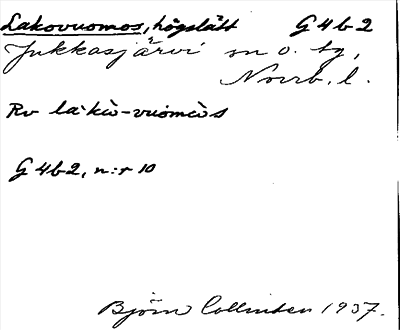 Lakovuomos, högslått G 4 b 2
Jukkasjärvi sn o. tg,
Norrb. l.
Rv la`kù-vuòmùs
G 4b2, n:r 10
Björn Collinder 1937.